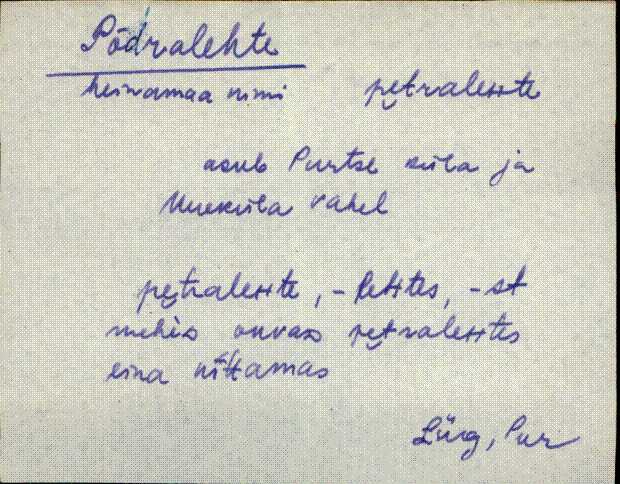 Põdralehte
heinamaa nimi pe̮tralehte
asub Purtse küla ja
Uueküla vahel
pe̮tralehte, -lehtes, -st
mehis onvas pe̮tralehtes
eina niitamas
Lüg, Pur